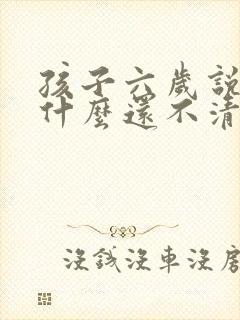 孩子六歲說
什麼還不清
沒錢沒車沒房